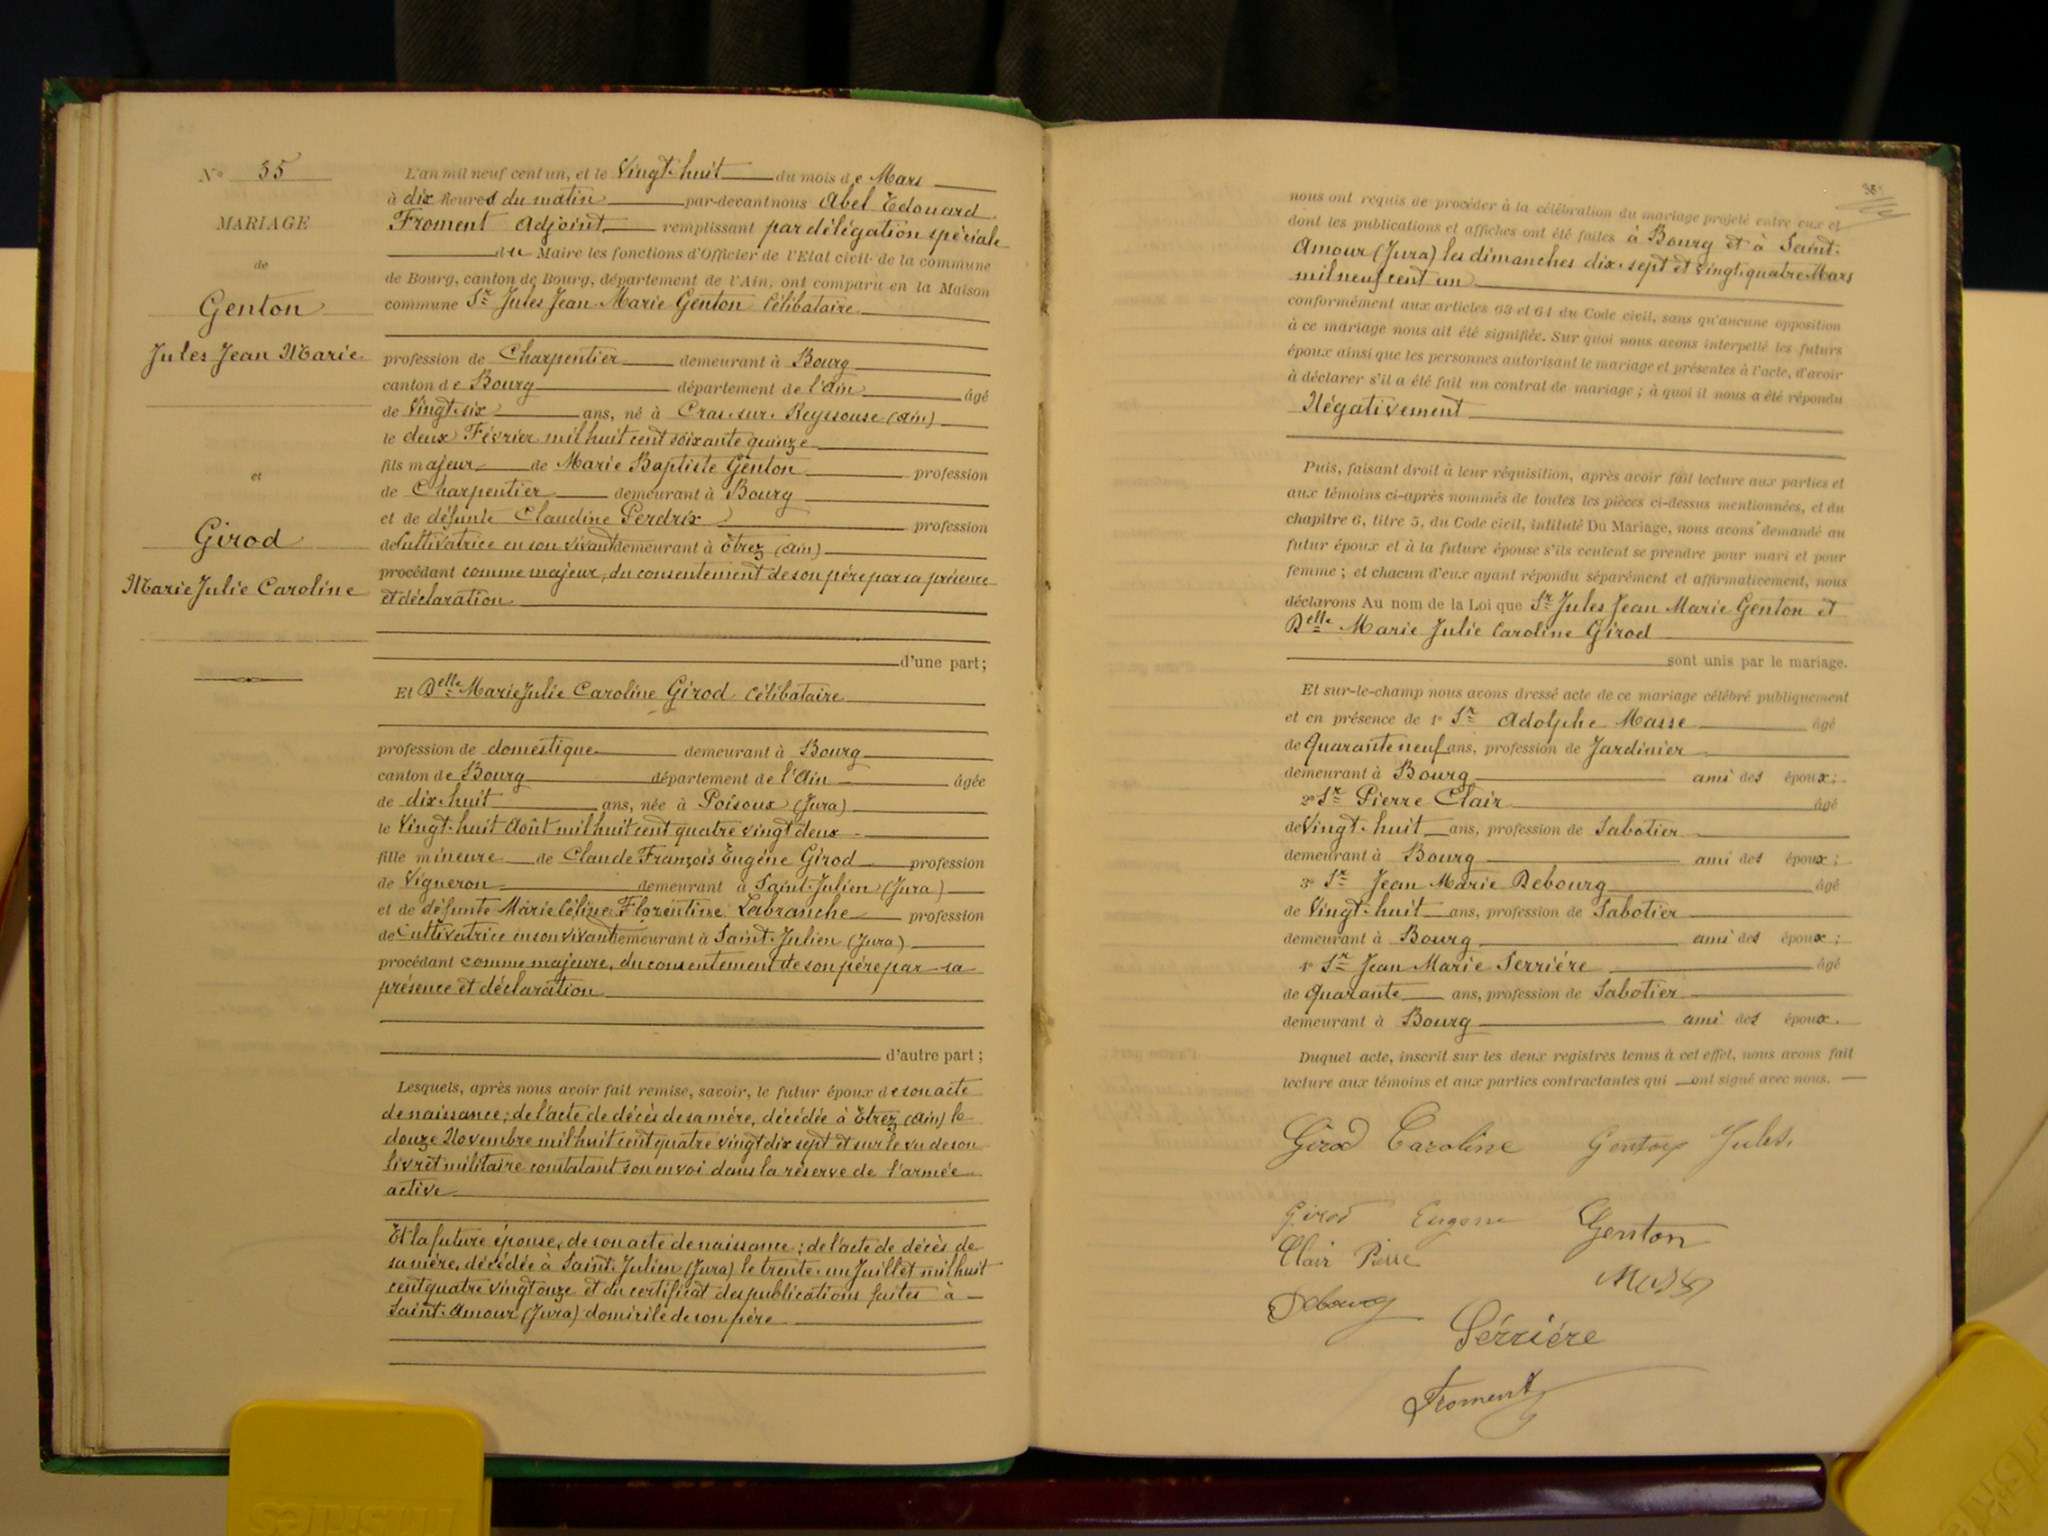 N° 35
MARIAGE
de
Genton
Jules Jean Marie
et
Girod
Marie Julie Caroline
L'an mil neuf cent un, et le Vingt-huit du mois de Mars
à dix heures du matin par-devant nous Abel Edouard
Froment Adjoint remplissant par délégation spéciale
du Maire les fonctions d'Officier de l'Etat civil de la commune
de Bourg, canton de Bourg, département de l'Ain, ont comparu en la Maison
commune Sr Jules Jean Marie Genton Célibataire
profession de Charpentier demeurant à Bourg
canton de Bourg département de l'Ain âgé
de Vingt-six ans, né à Cras-sur-Reyssouse (Ain)
le deux Février mil huit cent soixante quinze
fils majeur de Marie Baptiste Genton profession
de Charpentier demeurant à Bourg
et de défunte Claudine Perdrix profession
de Cultivatrice en son vivant demeurant à Etrez (Ain)
procédant comme majeur, du consentement de son père par sa présence
et déclaration
d'une part;
Et Delle Marie Julie Caroline Girod Célibataire
profession de domestique demeurant à Bourg
canton de Bourg département de l'Ain âgée
de dix-huit ans, née à Poisoux (Jura)
le Vingt-huit Août mil huit cent quatre vingt deux
fille mineure de Claude François Eugène Girod profession
de Vigneron demeurant à Saint-Julien (Jura)
et de défunte Marie Céline Florentine Labranche profession
de Cultivatrice en son vivant demeurant à Saint-Julien (Jura)
procédant comme majeure, du consentement de son père par sa
présence et déclaration
d'autre part;
Lesquels, après nous avoir fait remise, savoir, le futur époux de son acte
de naissance; de l'acte de décès de sa mère, décédée à Etrez (Ain) le
douze Novembre mil huit cent quatre vingt dix sept et sur le vu de son
livret militaire constatant son envoi dans la réserve de l'armée
active
Et la future épouse, de son acte de naissance; de l'acte de décès de
sa mère, décédée à Saint-Julien (Jura) le trente-un Juillet mil huit
cent quatre vingt onze et du certificat des publications faites à
Saint-Amour (Jura) domicile de son père
nous ont requis de procéder à la célébration du mariage projeté entre eux et
dont les publications et affiches ont été faites à Bourg et à Saint-
Amour (Jura) les dimanches dix-sept et vingt-quatre Mars
mil neuf cent un
conformément aux articles 63 et 64 du Code civil, sans qu'aucune opposition
à ce mariage nous ait été signifiée. Sur quoi nous avons interpellé les futurs
époux ainsi que les personnes autorisant le mariage et présentes à l'acte, d'avoir
à déclarer s'il a été fait un contrat de mariage; à quoi il nous a été répondu
Négativement
Puis, faisant droit à leur réquisition, après avoir fait lecture aux parties et
aux témoins ci-après nommés de toutes les pièces ci-dessus mentionnées, et du
chapitre 6, titre 5, du Code civil, intitulé Du Mariage, nous avons demandé au
futur époux et à la future épouse s'ils veulent se prendre pour mari et pour
femme; et chacun d'eux ayant répondu séparément et affirmativement, nous
déclarons Au nom de la Loi que Sr Jules Jean Marie Genton et
Delle Marie Julie Caroline Girod
sont unis par le mariage.
Et sur-le-champ nous avons dressé acte de ce mariage célébré publiquement
et en présence de 1° Sr Adolphe Masse âgé
de Quarante neuf ans, profession de Jardinier
demeurant à Bourg ami des époux;
2° Sr Pierre Clair âgé
de Vingt-huit ans, profession de Sabotier
demeurant à Bourg ami des époux;
3° Sr Jean Marie Debourg âgé
de Vingt-huit ans, profession de Sabotier
demeurant à Bourg ami des époux;
4° Sr Jean Marie Serrière âgé
de Quarante ans, profession de Sabotier
demeurant à Bourg ami des époux.
Duquel acte, inscrit sur les deux registres tenus à cet effet, nous avons fait
lecture aux témoins et aux parties contractantes qui ont signé avec nous.
Girod Caroline Genton Jules
Girod Eugene Genton
Clair Pierre
Debourg
Sérrière
Froment